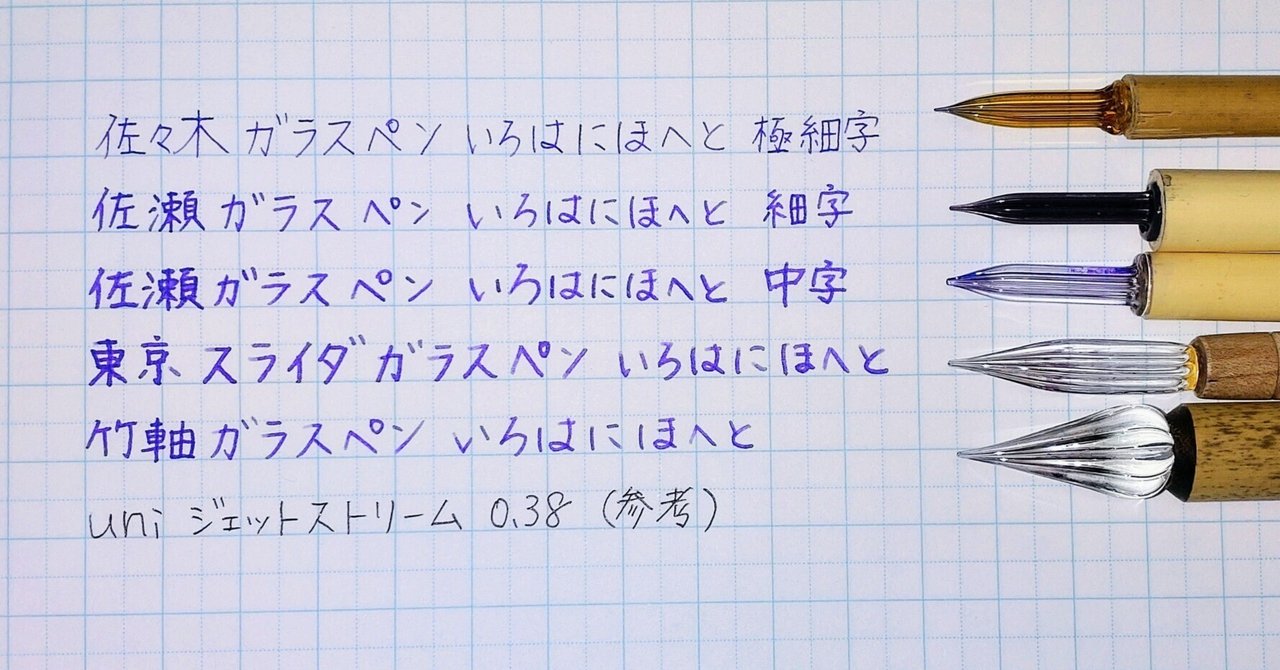 佐々木 ガラスペン いろはにほへと 極細字
佐瀬 ガラス ペン いろはにほへと 細字
佐瀬 ガラス ペン いろはにほへと 中字
東京 スライダ ガラスペン いろはにほへと
竹軸 ガラスペン いろはにほへと
uni ジェットストリーム 0.38 (参考)